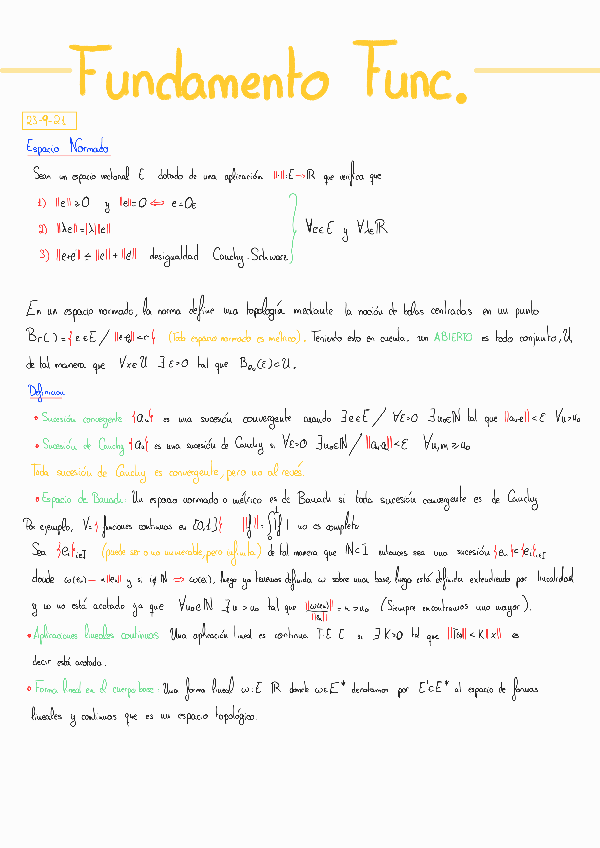 Fundamento Func.
23-9-21
Espacio Normado
Sean un espacio vectorial E dotado de una aplicación ||·||:E→ℝ que verifica que
1) ||e||≥0 y ||e||=0 ⇔ e=0E
2) ||λe||=|λ|||e|| ∀e∈E y ∀λ∈ℝ
3) ||e+e'|| ≤ ||e|| + ||e'|| desigualdad Cauchy-Schwarz
En un espacio normado, la norma define una topología mediante la noción de bolas centradas en un punto
Br( ) = { e∈E / ||e-e₀||<r } (Todo espacio normado es métrico). Teniendo esto en cuenta, un ABIERTO es todo conjunto, U
de tal manera que ∀x∈U ∃ε>0 tal que (ε)⊂U.
Definicion
• Sucesión convergente {aₙ} es una sucesión convergente cuando ∃e∈E / ∀ε>0 ∃n₀∈ℕ tal que ||aₙ-e||<ε ∀n>n₀
• Sucesión de Cauchy {aₙ} es una sucesión de Cauchy si ∀ε>0 ∃n₀∈ℕ / ||aₙ-aₘ||<ε ∀n,m≥n₀
Toda sucesión de Cauchy es convergente, pero no al revés.
• Espacio de Banach: Un espacio normado o métrico es de Banach si toda sucesión convergente es de Cauchy
Por ejemplo, V={ funciones continuas en [0,1] } ||f||=∫₀¹|f| no es completo
Sea {eᵢ}i∈I (puede ser o no numerable, pero infinita) de tal manera que ℕ⊂I entonces sea una sucesión {eₙ}⊂{eᵢ}i∈I
donde ω(eₙ) = n||eₙ|| y si i∉ℕ ⇒ ω(eᵢ), luego ya tenemos definida ω sobre una base, luego está definida extendiendo por linealidad
y no está acotado ya que ∀n₀∈ℕ ∃n>n₀ tal que ||ω(eₙ)||/||eₙ|| = n>n₀ (Siempre encontramos uno mayor).
• Aplicaciones lineales continuas: Una aplicación lineal es continua T:E E si ∃K>0 tal que ||T(x)||<K||x|| es
decir está acotada.
• Forma lineal en el cuerpo base: Una forma lineal ω:E ℝ donde ω∈E* denotamos por E'⊂E* al espacio de formas
lineales y continuas que es un espacio topológico.